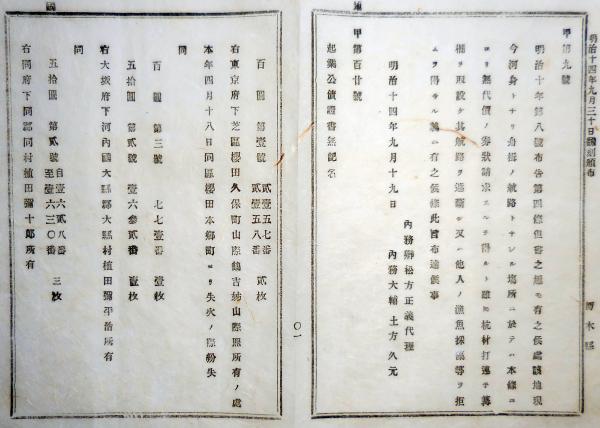 明治十四年九月三十日
甲第九號
明治十年第八號布告第四條但書之趣モ有之候處該地現
今河身トナリ舟楫ノ航路トナレル塲所ニ於テハ本條ニ
ヨリ無代價ノ券狀請求スルヲ得ルト雖モ杭材打連子籬
柵ヲ取設ケ其航路ヲ遮斷シ又ハ他人ノ漁魚採藻等ヲ拒
ムヲ得サル義ニ有之候條此旨布達候事
明治十四年九月十九日
內務卿松方正義代理
內務大輔 土方久元
甲第百廿號
起業公債證書無記名
百圓 第壹號
貳壹五七番
貳壹五八番
貳枚
右東京府下芝區櫻田久保町山際鶴吉姉山際照所有ノ處
本年四月十八日同區櫻田本鄕町ヨリ失火ノ際紛失
同
百圓 第三號 七七壹番 壹枚
五拾圓 第貳號 壹六參貳番 壹枚
右大坂府下河內國大縣郡大縣村植田彌平治所有
同
五拾圓 第貳號
自壹六貳八番
至壹六三〇番
三枚
右同府下同郡同村植田彌十郞所有
〇一